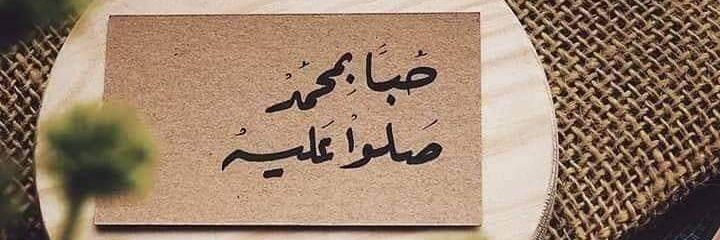 حُبَّاً بمحمدْ
صَلواْ عَليهْ